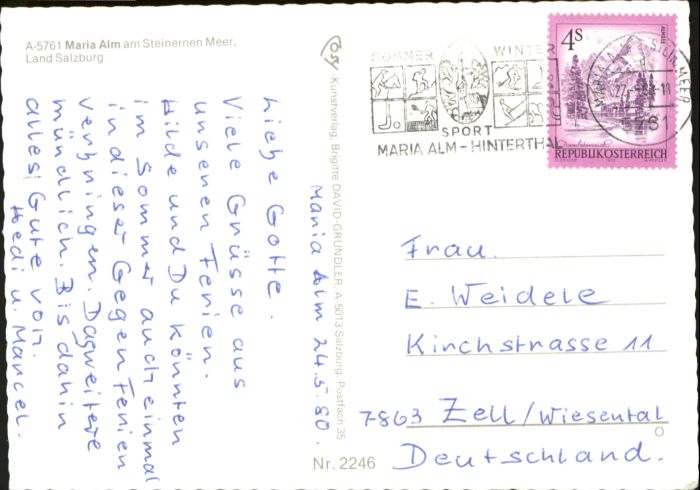 A-5761 Maria Alm am Steinernen Meer,
Land Salzburg
Maria Alm 24.5.80.
Liebe Gotte.
Viele Grüsse aus
unseren Ferien.
Hilde und Du könnten
im Sommer auch einmal
in dieser Gegen Ferien
verbringen. Das weitere
mündlich. Bis dahin
alles Gute von.
Hedi u. Marcel.
Kunstverlag Brigitte DAVID-GRÜNDLER A-5013 Salzburg, Postfach 35
Nr. 2246
SOMMER WINTER
SPORT
MARIA ALM - HINTERTHAL
5761
4S
ALMSEE
REPUBLIK ÖSTERREICH
Frau.
E. Weidele
Kirchstrasse 11
7863 Zell/Wiesental
Deutschland.